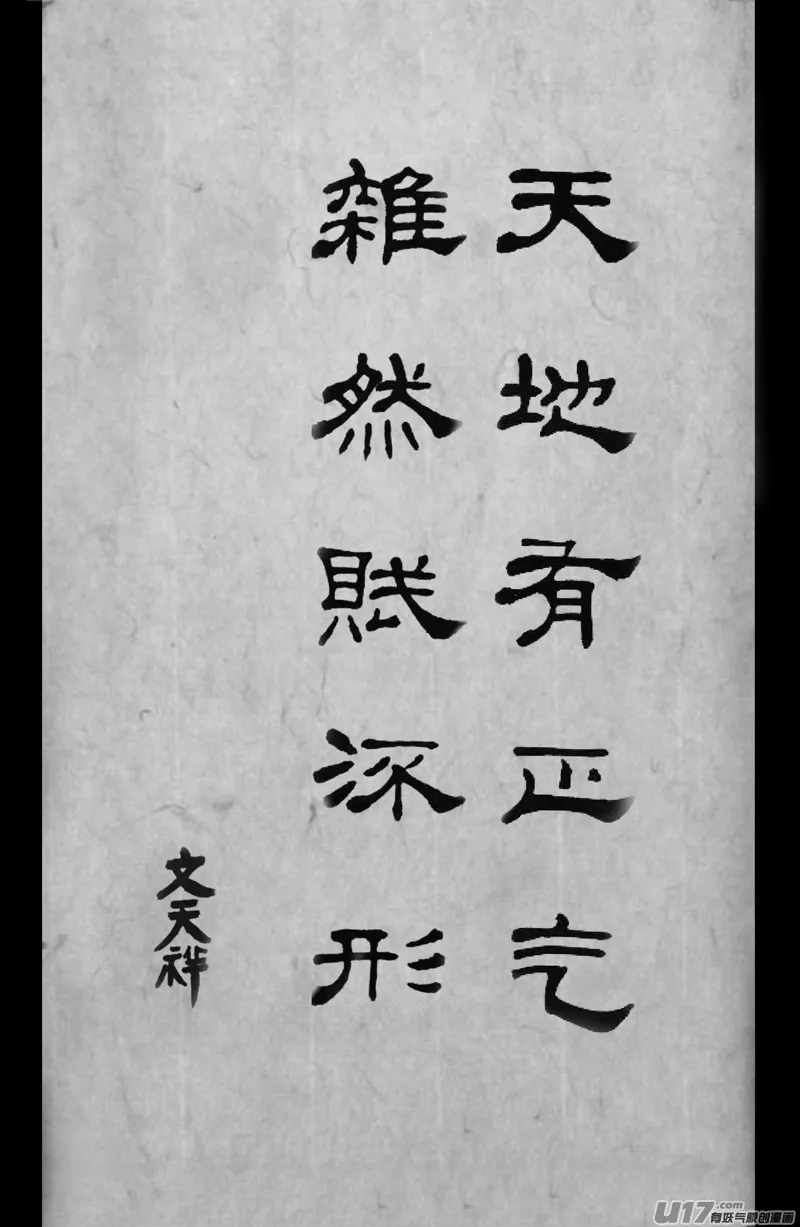 天地有正气
雜然賦㳅形
文天祥
U17.com
有妖气原创漫画